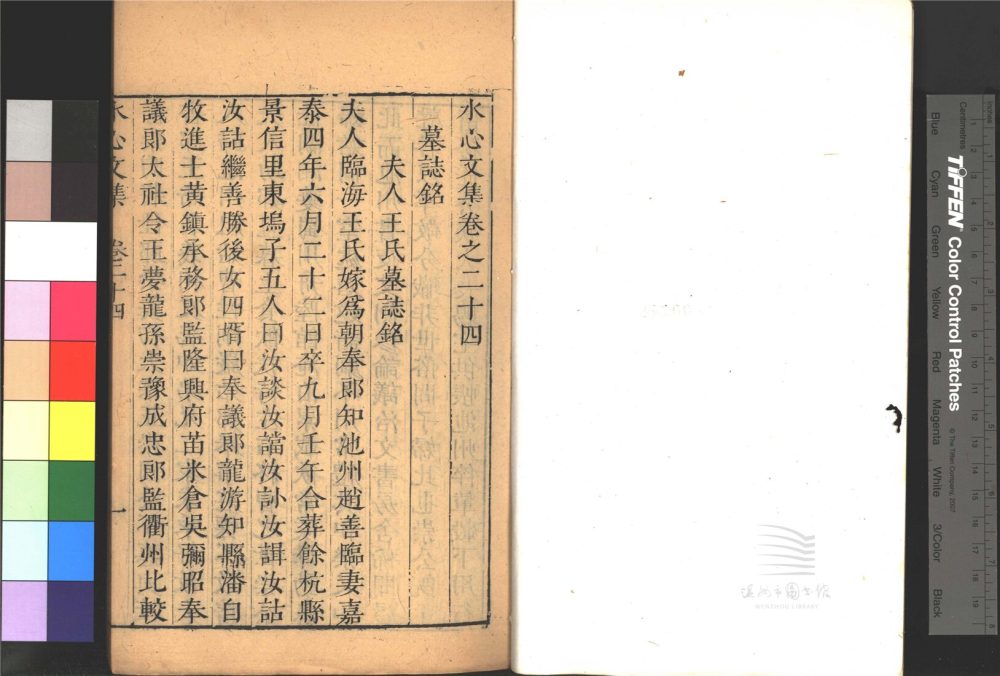 水心文集卷之二十四
墓誌銘
夫人王氏墓誌銘
夫人臨海王氏嫁爲朝奉郎知池州趙善臨妻嘉
泰四年六月二十二日卒九月壬午合葬餘杭縣
景信里東塢子五人曰汝談汝譡汝訃汝諿汝詁
汝詁繼善勝後女四壻曰奉議郎龍游知縣潘自
牧進士黃鎮承務郎監隆興府苗米倉吳彌昭奉
議郎太社令王夢龍孫崇豫成忠郎監衢州比較
水心文集 卷二十四 一
溫州市圖書館
WENZHOU LIBRARY
Inches
Centimetres
TIFFEN Color Control Patches
© The Tiffen Company, 2007
Blue Cyan Green Yellow Red Magenta White 3/Color Black
1 2 3 4 5 6 7 8
1 2 3 4 5 6 7 8 9 10 11 12 13 14 15 16 17 18 19